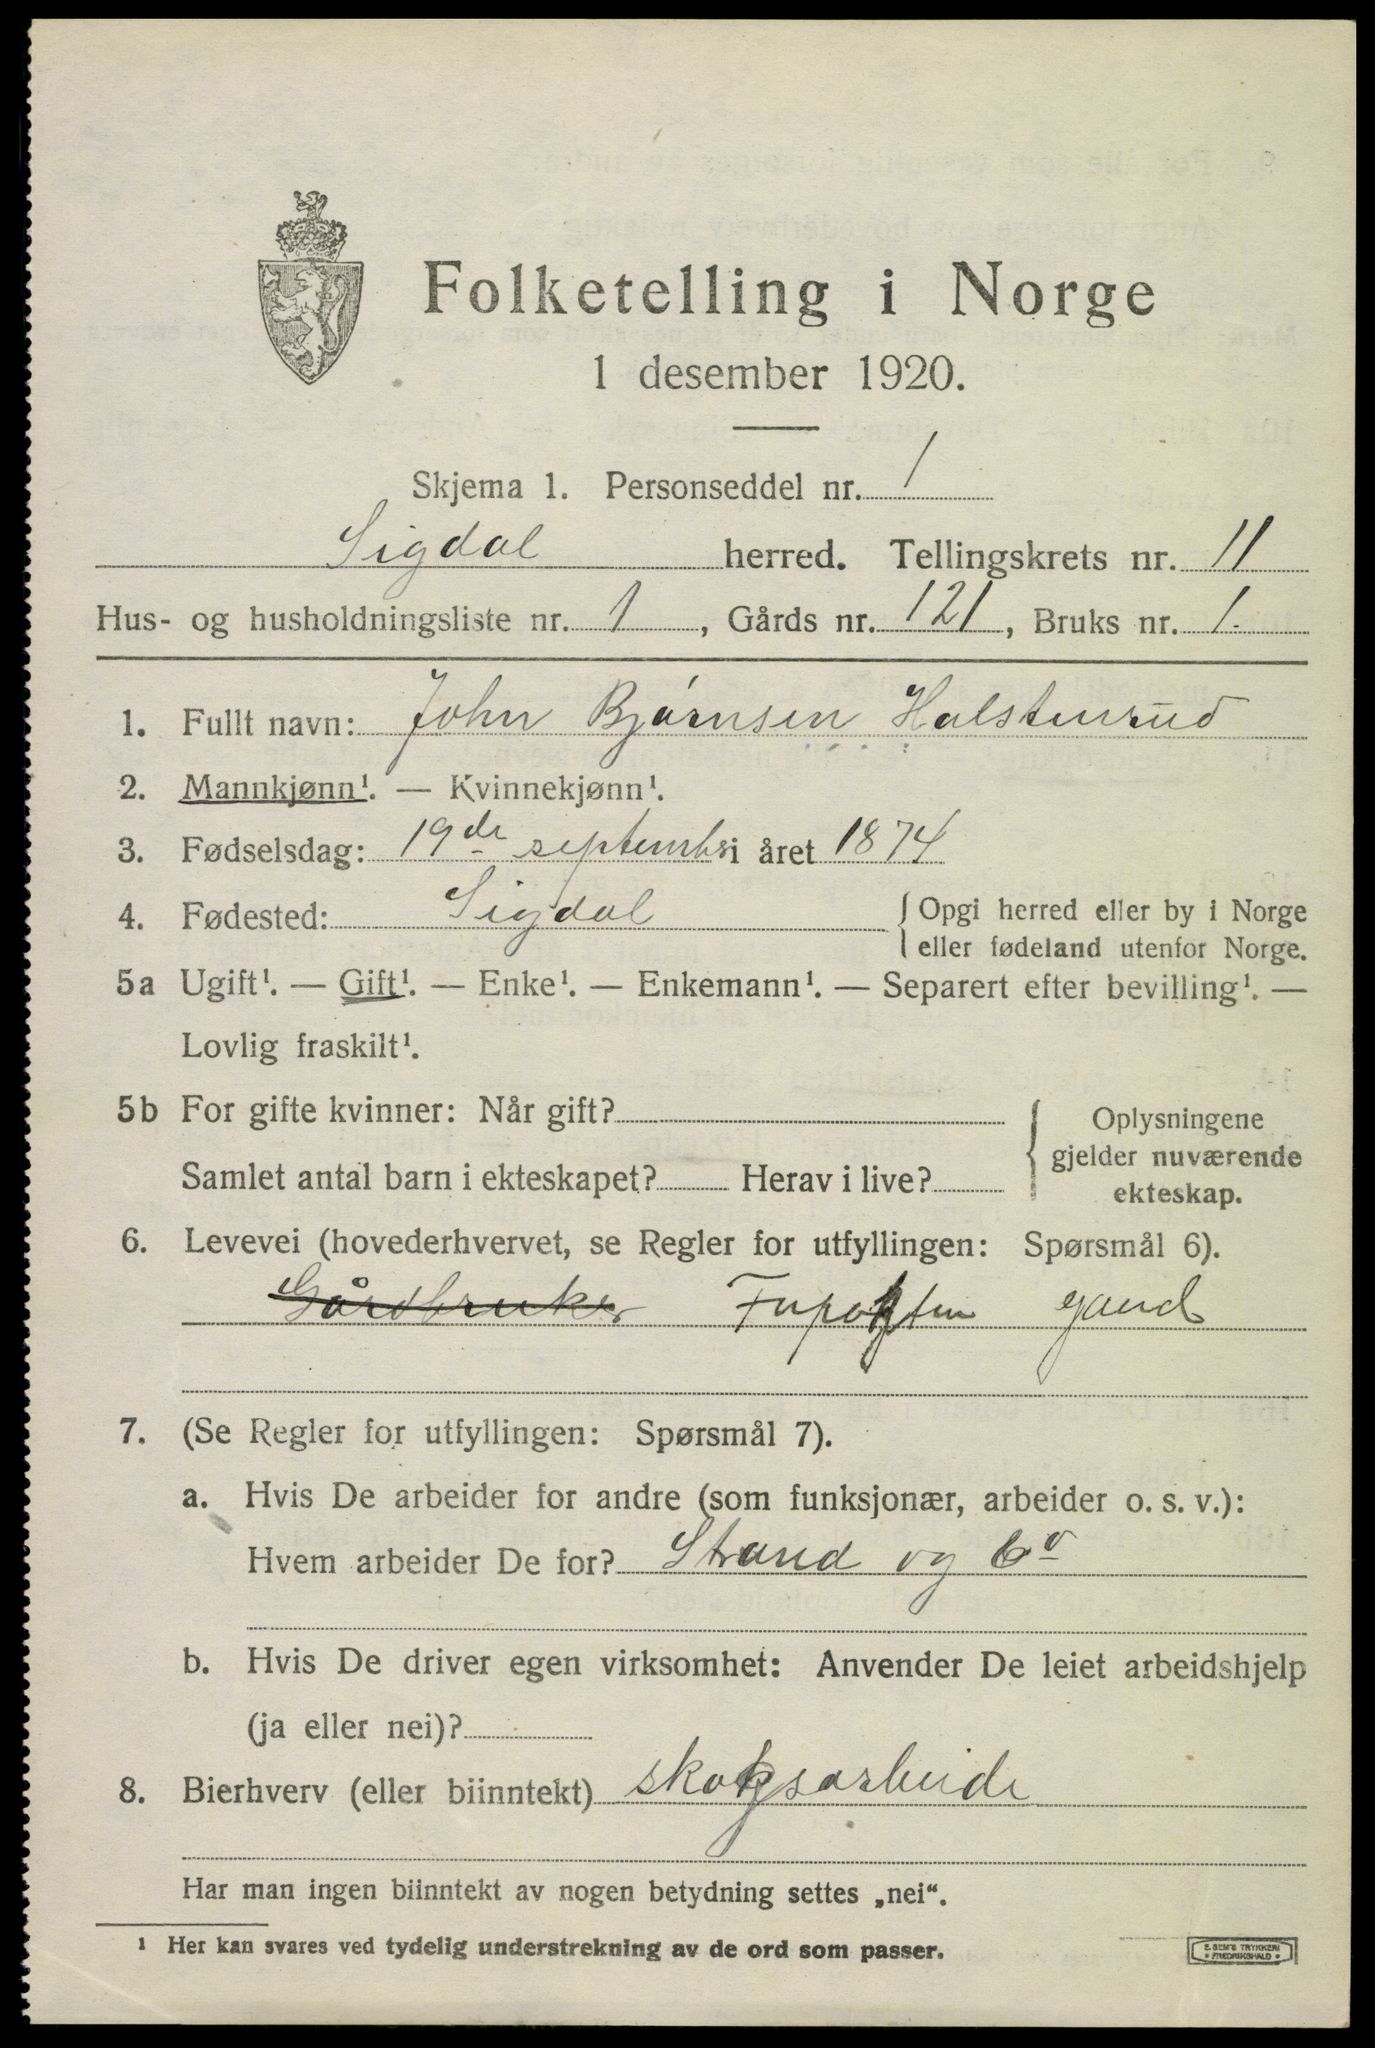 Folketelling i Norge
1 desember 1920.
Skjema 1. Personseddel nr. 1
Sigdal herred. Tellingskrets nr. 11
Hus- og husholdningsliste nr. 1, Gårds nr. 121, Bruks nr. 1.
1. Fullt navn: John Bjørnsen Halstenrud
2. Mannkjønn¹. — Kvinnekjønn¹.
3. Fødselsdag: 19de septembr i året 1874
4. Fødested: Sigdal { Opgi herred eller by i Norge
eller fødeland utenfor Norge.
5a Ugift¹. — Gift¹. — Enke¹. — Enkemann¹. — Separert efter bevilling¹. —
Lovlig fraskilt¹.
5b For gifte kvinner: Når gift? { Oplysningene
gjelder nuværende
Samlet antal barn i ekteskapet? Herav i live?
ekteskap.
6. Levevei (hovederhvervet, se Regler for utfyllingen: Spørsmål 6).
Gårdbruker
7. (Se Regler for utfyllingen: Spørsmål 7).
a. Hvis De arbeider for andre (som funksjonær, arbeider o. s. v.):
Hvem arbeider De for? Strand og Co
b. Hvis De driver egen virksomhet: Anvender De leiet arbeidshjelp
(ja eller nei)?
8. Bierhverv (eller biinntekt) skogsarbeide
Har man ingen biinntekt av nogen betydning settes „nei“.
¹ Her kan svares ved tydelig understrekning av de ord som passer.
E. SEM'S TRYKKERI
FREDRIKSHALD